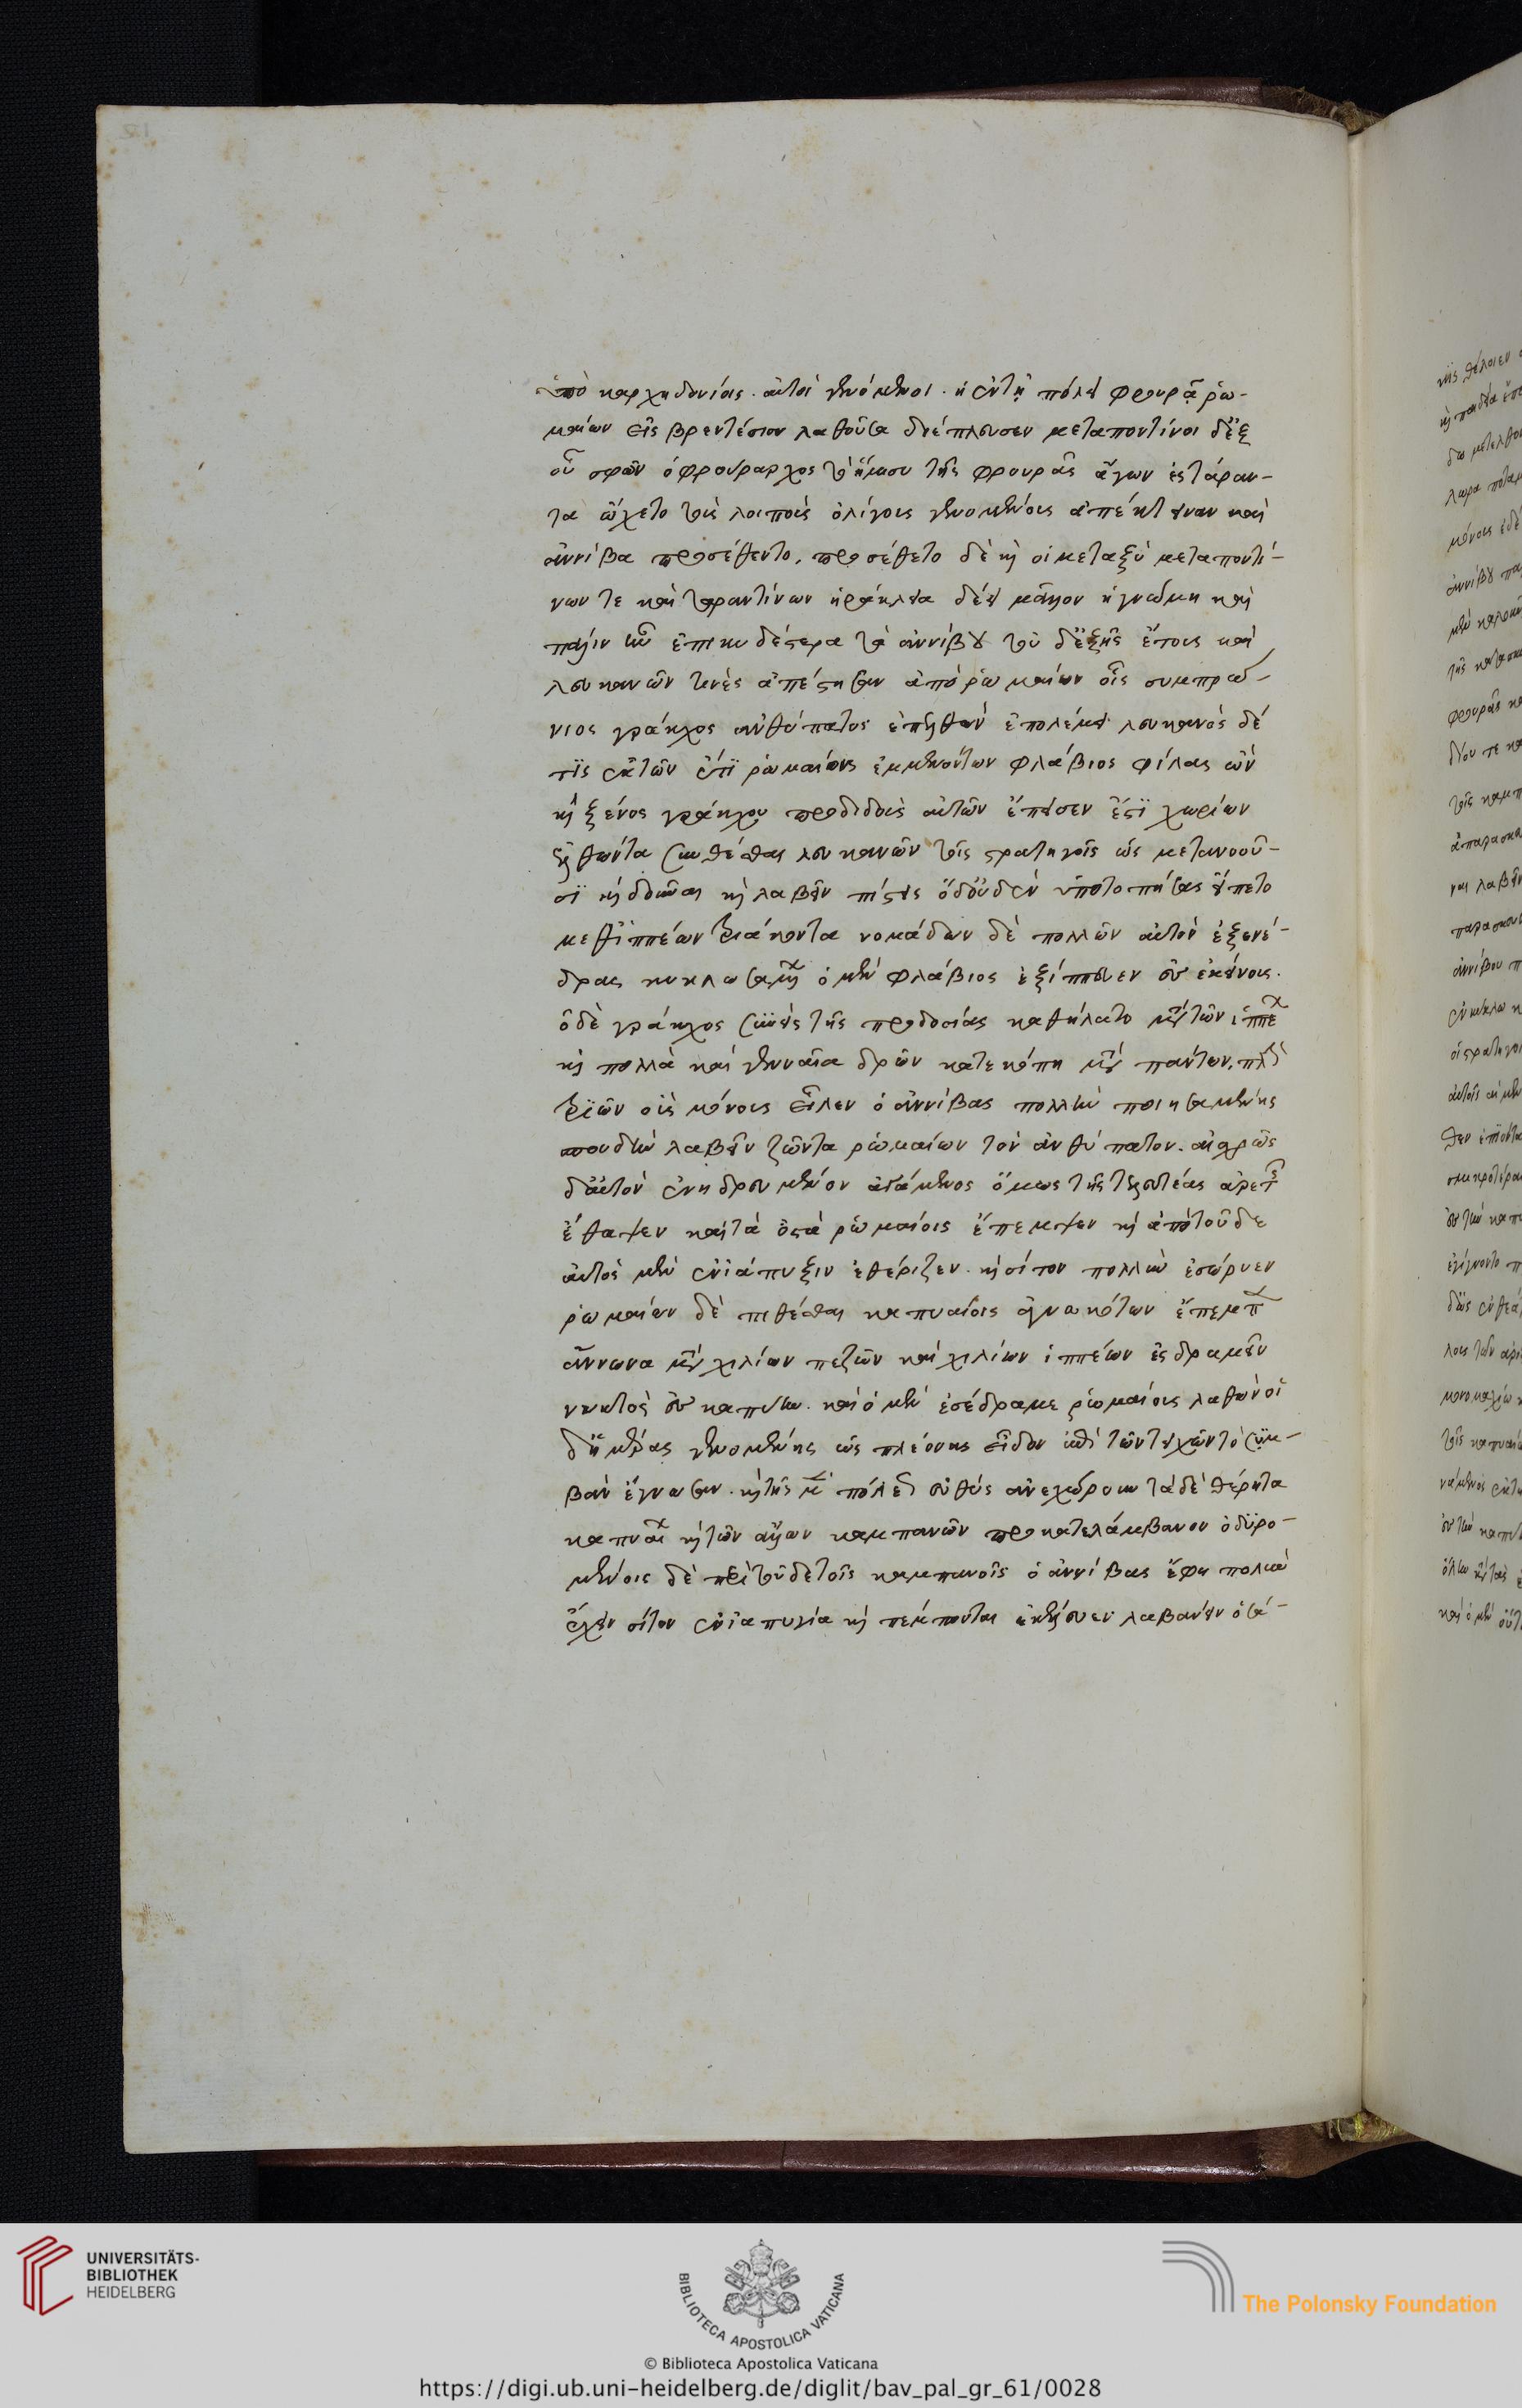 ὑπὸ καρχηδονίοις. αὐτοὶ γενόμενοι. ἡ ἐν τῇ πόλει φρουρᾷ ῥω-
μαίων εἰς βρεντέσιον λαθοῦσα διέπλευσεν μεταποντίνοι δ' ἐξ
οὗ σφῶν ὁ φρούραρχος τὸ ἥμισυ τῆς φρουρᾶς ἄγων ἐς τάραν-
τα ὤχετο τοὺς λοιποὺς ὀλίγους γενομένους ἀπέκτειναν καὶ
ἀννίβα προσέθεντο. προσέθετο δὲ καὶ οἱ μεταξὺ μεταποντί-
νων τε καὶ ταραντίνων ἡράκλεια δέει μᾶλλον ἢ γνώμη καὶ
πάλιν ἦν ἐπικυδέστερα τὰ ἀννίβου τοῦ δ' ἑξῆς ἔτους καὶ
λευκανῶν τινὲς ἀπέστησαν ἀπὸ ῥωμαίων οἷς συμπρώ-
νιος γράκχος ἀνθύπατος ἐπελθὼν ἐπολέμει λευκανὸς δέ
τις ἐκ τῶν ἔτι ῥωμαίοις ἐμμενόντων φλάβιος φίλος ὢν
καὶ ξένος γράκχου προδιδοὺς αὐτὸν ἔπεισεν ἔς τι χωρίον
ἐλθόντα συνθέσθαι λευκανῶν τοῖς στρατηγοῖς ὡς μετανοοῦ-
σι καὶ δοῦναι καὶ λαβεῖν πίστεις ὁ δ' οὐδὲν ὑποτοπήσας εἵπετο
μεθ' ἱππέων τριάκοντα νομάδων δὲ πολλῶν αὐτὸν ἐξ ἐνέ-
δρας κυκλωσαμένων ὁ μὲν φλάβιος ἐξίππευσεν ἐς ἐκείνους.
ὁ δὲ γράκχος συνεὶς τῆς προδοσίας καθήλατο μετὰ τῶν ἱππέων
καὶ πολλὰ καὶ γενναῖα δρῶν κατεκόπη μετὰ πάντων. πλὴν
τριῶν οὓς μόνους εἷλεν ὁ ἀννίβας πολλὴν ποιησαμένης
σπουδὴν λαβεῖν ζῶντα ῥωμαίων τὸν ἀνθύπατον. αἰσχρῶς
δ' αὐτὸν ἐνηδρευμένον ἀγάμενος ὅμως τῆς τελευταίας ἀρετῆς
ἔθαψεν καὶ τὰ ὀστᾶ ῥωμαίοις ἔπεμψεν καὶ ἀπὸ τοῦδε
αὐτὸς μὲν ἐν ἰάπυξιν ἐθέριζεν. καὶ σίτον πολλὺν ἐσώρυεν
ῥωμαίων δὲ πιθέσθαι καπυαίοις ἐγνωκότων ἔπεμπεν
ἄννωνα μετὰ χιλίων πεζῶν καὶ χιλίων ἱππέων ἐς δραμεῖν
νυκτὸς ἐς καπύην. καὶ ὁ μὲν ἐσέδραμε ῥωμαίους λαθὼν οἱ
δ' ἡμέρας γενομένης ὡς πλέονας εἶδον ἐπὶ τῶν τειχῶν τὸ συμ-
βὰν ἔγνωσαν. καὶ τῆς μὲν πόλεως εὐθὺς ἀνεχώρουν τὰ δὲ θέρη τὰ
καπυαίων καὶ τῶν ἄλλων καμπανῶν προκατελάμβανον ὀδυρο-
μένοις δὲ περὶ τοῦδε τοῖς καμπανοῖς ὁ ἀννίβας ἔφη πολὺν
ἔχειν σίτον ἐν ἰαπυγία καὶ πέμποντας ἐκέλευεν λαβάνειν ὁσά-
UNIVERSITÄTS-
BIBLIOTHEK
HEIDELBERG
BIBLIOTECA APOSTOLICA VATICANA
The Polonsky Foundation
© Biblioteca Apostolica Vaticana
https://digi.ub.uni-heidelberg.de/diglit/bav_pal_gr_61/0028